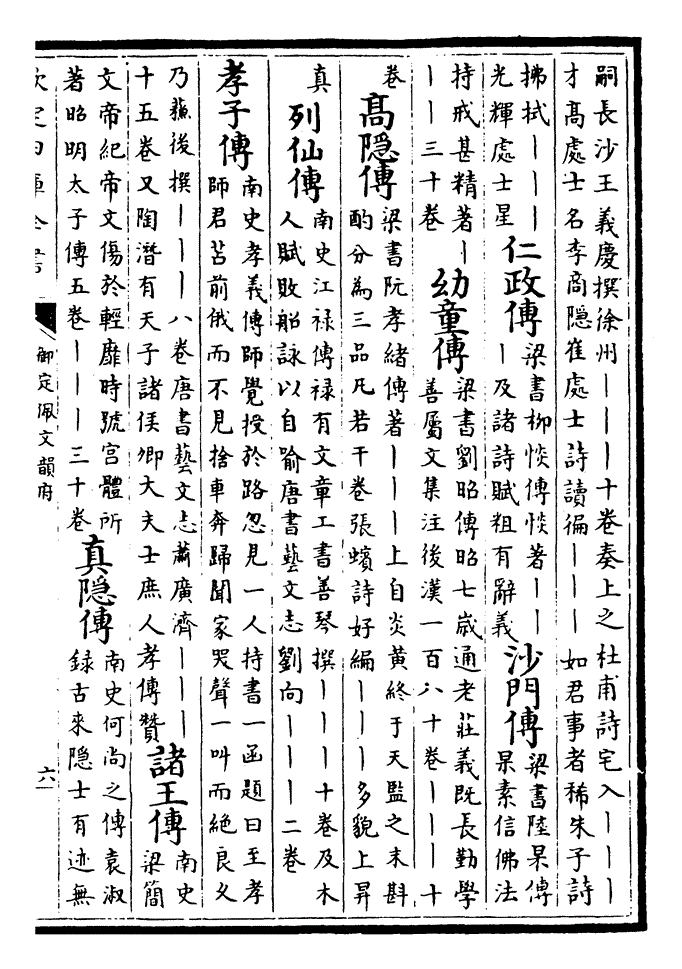 嗣長沙王義慶撰徐州丨丨丨十卷奏上之杜甫詩宅入丨丨丨
才髙處士名李商隐崔處士詩讀徧丨丨丨如君事者稀朱子詩
拂拭丨丨丨
光輝處士星
仁政傳
梁書柳惔傳惔著丨丨
丨及諸詩賦粗有辭義
沙門傳
梁書陸杲傳
杲素信佛法
持戒甚精著丨
丨丨三十卷
幼童傳
梁書劉昭傳昭七歳通老莊義既長勤學
善屬文集注後漢一百八十卷丨丨丨十
卷
髙隐傳
梁書阮孝緒傳著丨丨丨上自炎黄終于天監之末斟
酌分為三品凡若干卷張蠙詩好編丨丨丨多貌上昇
真
列仙傳
南史江禄傳禄有文章工書善琴撰丨丨丨十卷及木
人賦敗船詠以自喻唐書藝文志劉向丨丨丨二卷
孝子傳
南史孝義傳師覺授於路忽見一人持書一函題曰至孝
師君苫前俄而不見捨車奔歸聞家哭聲一叫而絶良乆
乃蘓後撰丨丨丨八卷唐書藝文志蕭廣濟丨丨丨
十五卷又陶潜有天子諸侯卿大夫士庶人孝傳贊
諸王傳
南史
梁簡
文帝紀帝文傷於輕靡時號宫體所
著昭明太子傳五卷丨丨丨三十卷
真隐傳
南史何尚之傳袁淑
録古來隐士有迹無
欽定四庫全書
御定佩文韻府
六